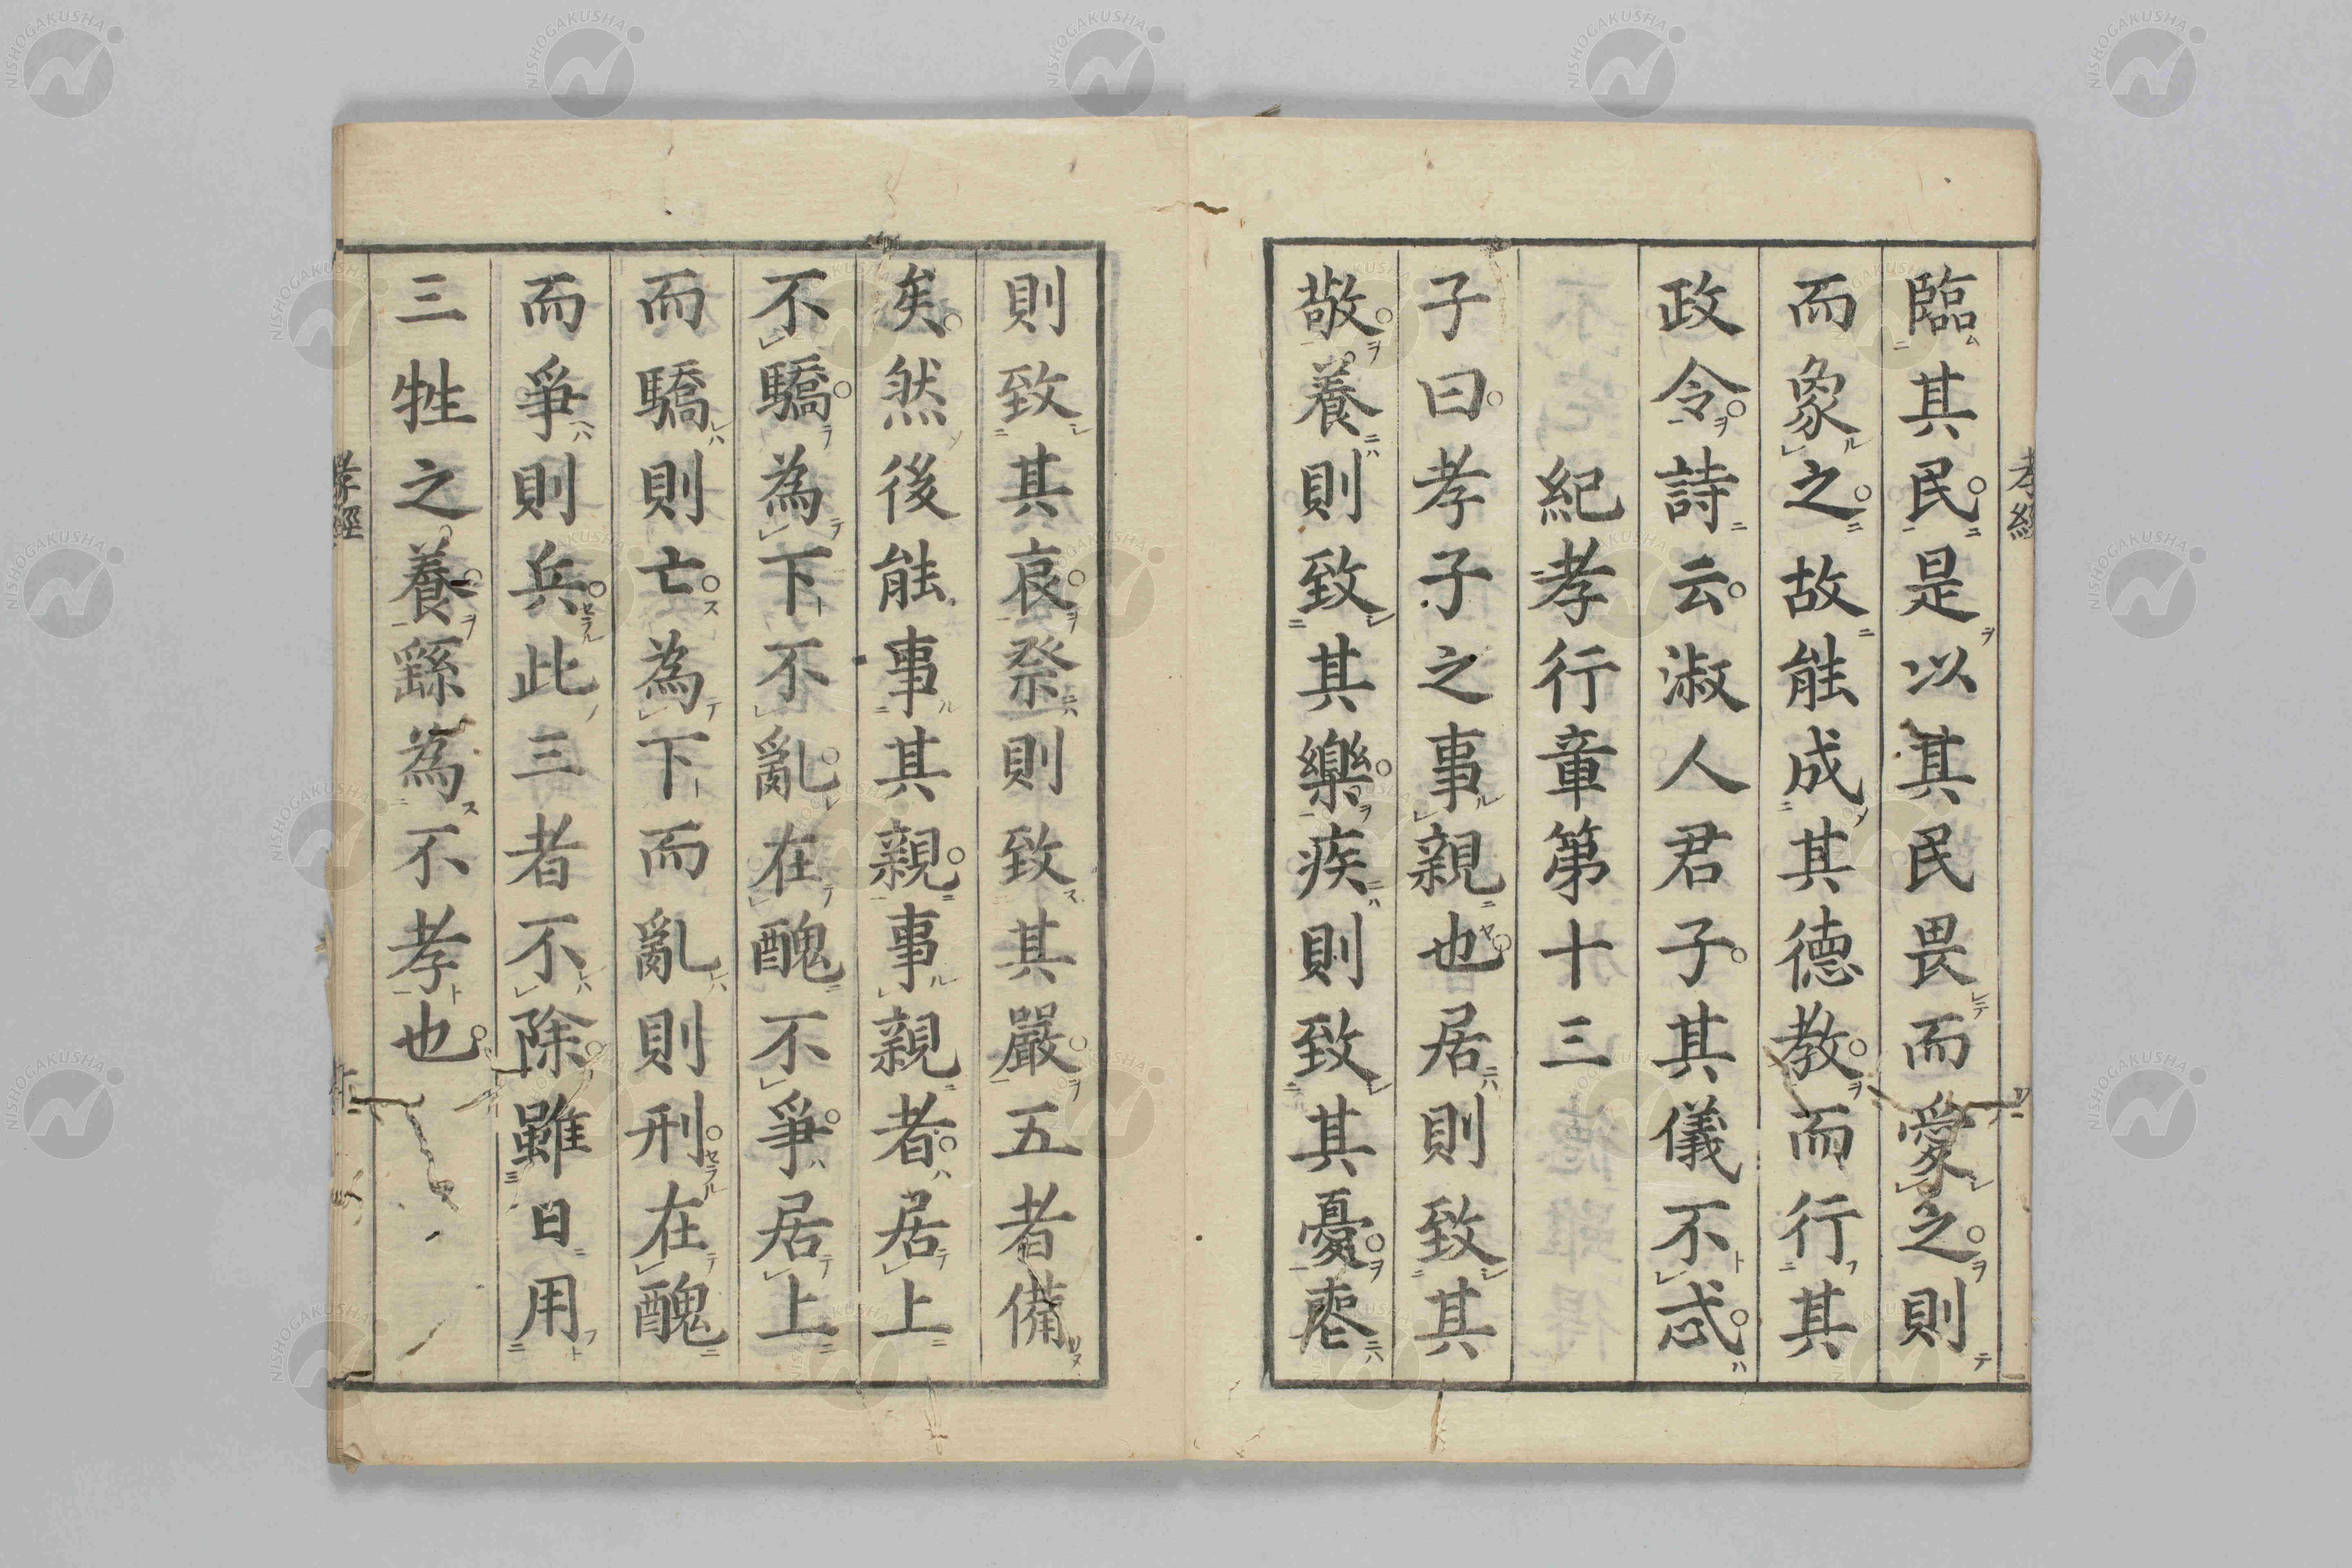 臨其民是以其民畏而愛之則
而象之故能成其德教而行其
政令詩云淑人君子其儀不忒
紀孝行章第十三
子曰孝子之事親也居則致其
敬養則致其樂疾則致其憂喪
則致其哀祭則致其嚴五者備
矣然後能事其親事親者居上
不驕為下不亂在醜不爭居上
而驕則亡為下而亂則刑在醜
而爭則兵此三者不除雖日用
三牲之養繇為不孝也
孝經